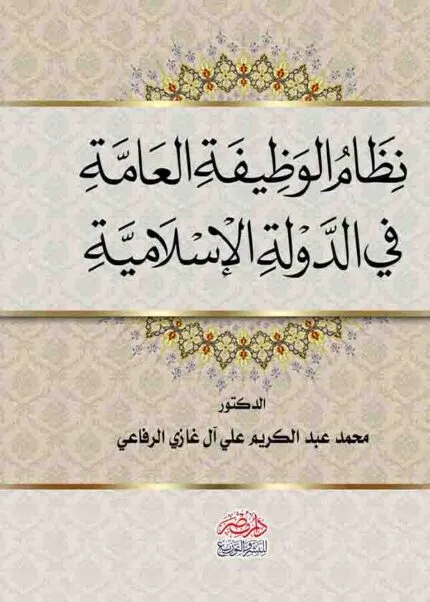 نِظَامُ الوَظِيفَةِ العَامَّةِ
فِي الدَّوْلَةِ الْإِسْلَامِيَّةِ
الدكتور
محمد عبد الكريم علي آل غازي الرفاعي
دار مصر
للنشر والتوزيع